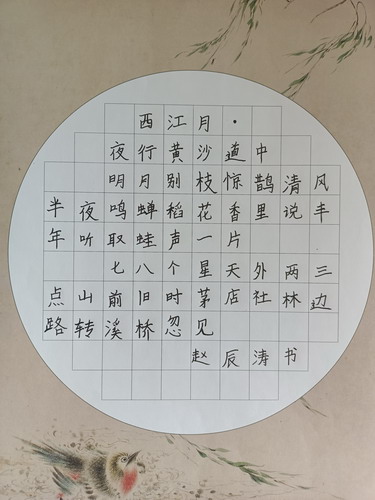 西江月·
夜行黄沙道中
明月别枝惊鹊清风
半夜鸣蝉稻花香里说丰
年听取蛙声一片
七八个星天外两三
点山前旧时茅店社林边
路转溪桥忽见
赵辰涛书